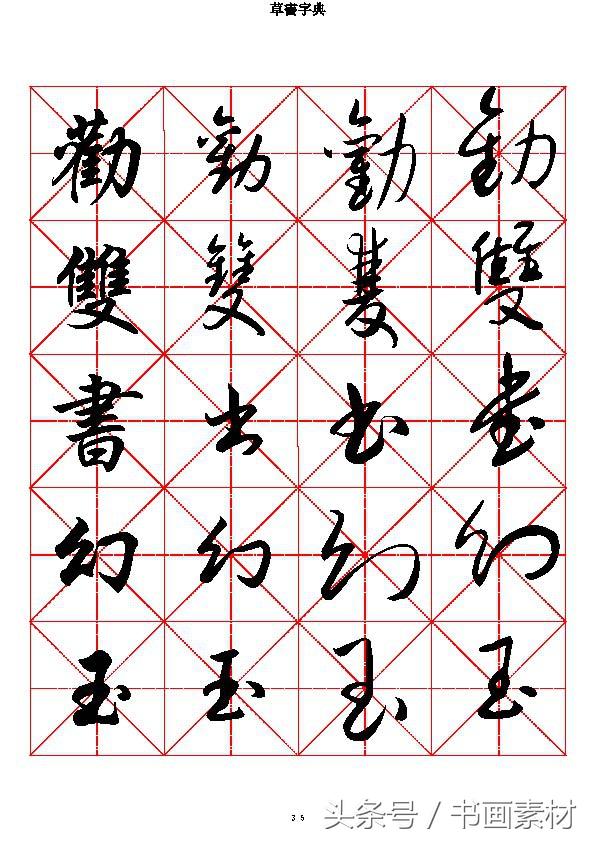 草書字典
勸 勸 勸 勸
雙 雙 雙 雙
書 書 書 書
幻 幻 幻 幻
玉 玉 玉 玉
35
头条号 / 书画素材